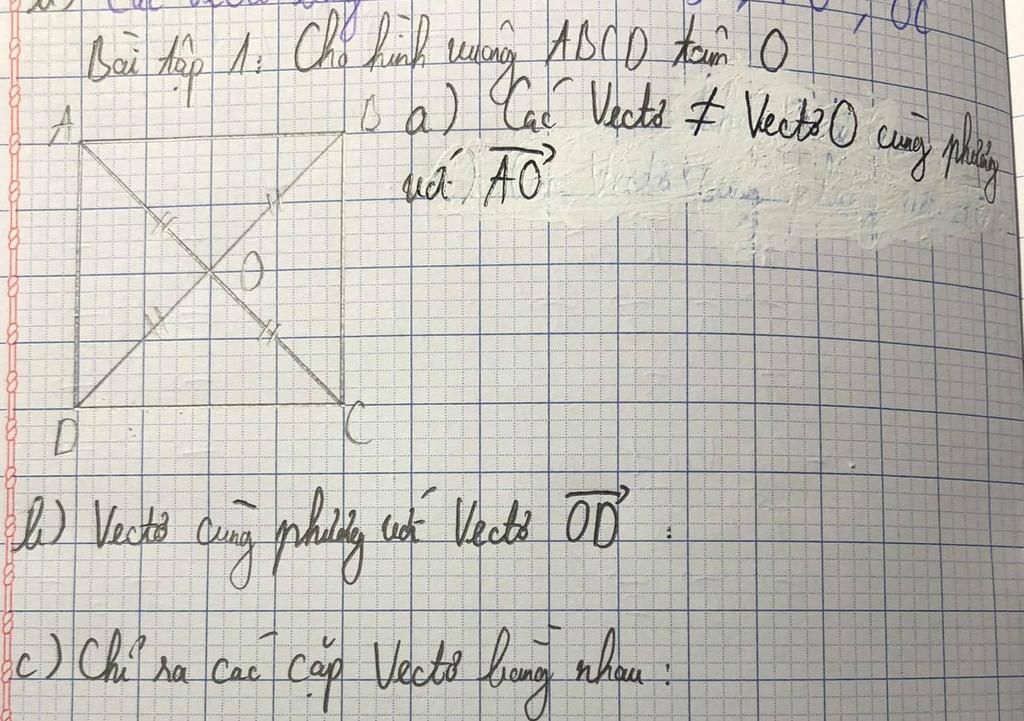 Bài tập 1: Cho hình vuông ABCD tâm O
A B a) Các Vectơ ≠ Vectơ O cùng phương
với AO
O
D C
b) Vectơ cùng phương với Vectơ OD :
c) Chỉ ra các cặp Vectơ bằng nhau :